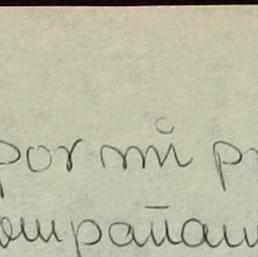 por mi pr
ompañam